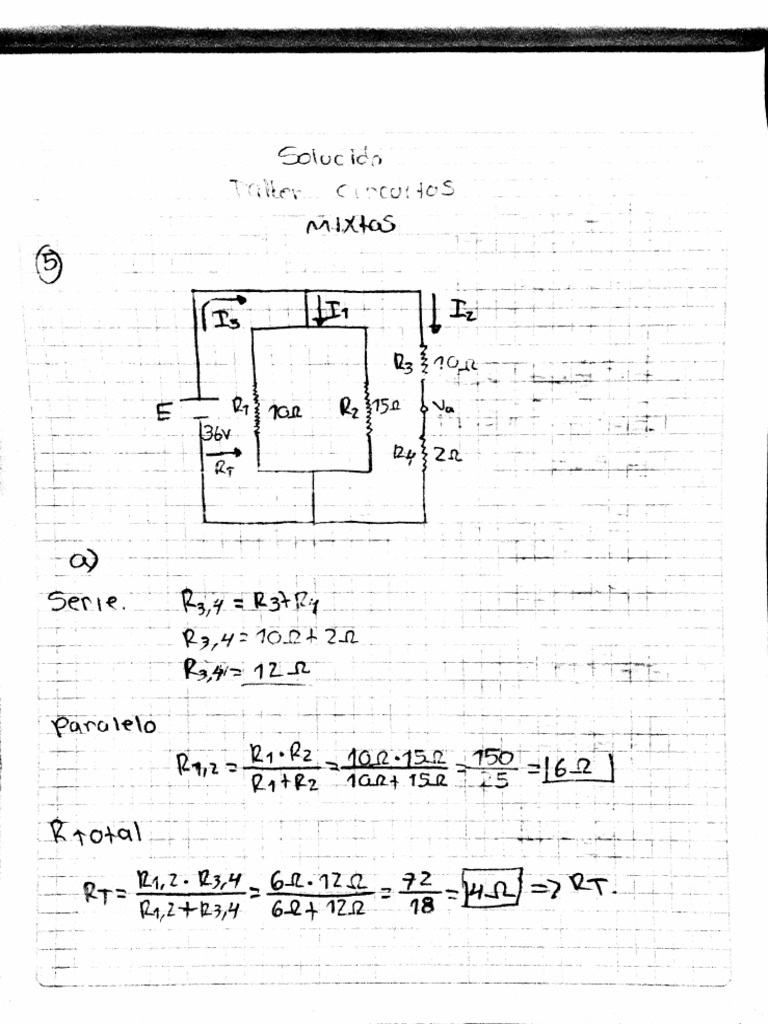 Solución
Taller circuitos
mixtos
5
I3
I1
I2
R3 10Ω
E
R1 10Ω
R2 15Ω
Va
36v
RT
R4 2Ω
a)
Serie. R3,4 = R3+R4
R3,4 = 10Ω + 2Ω
R3,4 = 12Ω
paralelo
R1,2 = R1·R2 / R1+R2 = 10Ω·15Ω / 10Ω+15Ω = 150 / 25 = 6Ω
R Total
RT = R1,2·R3,4 / R1,2+R3,4 = 6Ω·12Ω / 6Ω+12Ω = 72 / 18 = 4Ω => RT.